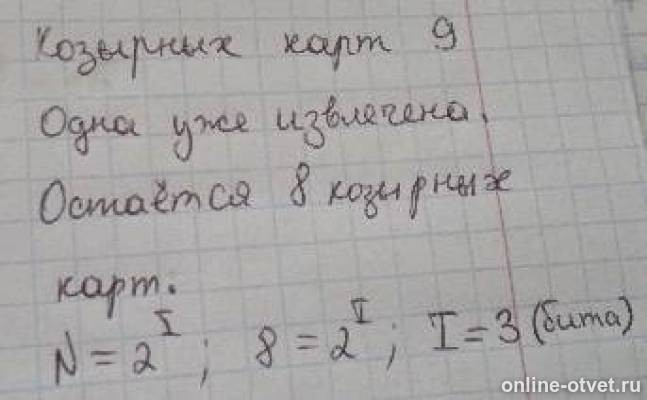 Козырных карт 9
Одна уже извлечена.
Остаётся 8 козырных
карт.
N = 2^I ; 8 = 2^I ; I = 3 (бита)
online-otvet.ru